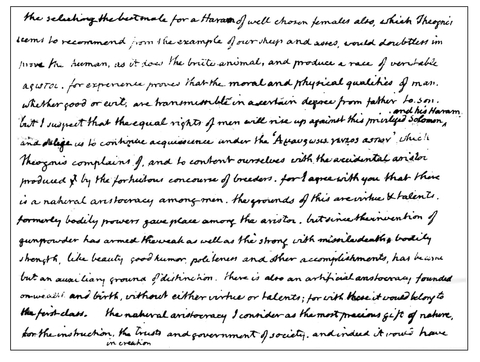 the selecting the best male for a Haram of well chosen females also, which Theognis
seems to recommend from the example of our sheep and asses, would doubtless im
prove the human, as it does the brute animal, and produce a race of veritable
aristoi. for experience proves that the moral and physical qualities of man,
whether good or evil, are transmissible in a certain degree from father to son.
but I suspect that the equal rights of men will rise up against this privileged Solomon, and his Haram,
and oblige us to continue acquiescence under the which
Theognis complains of, and to content ourselves with the accidental aristoi
produced by the fortuitous concourse of breeders. for I agree with you that there
is a natural aristocracy among men. the grounds of this are virtue & talents.
formerly bodily powers gave place among the aristoi. but since the invention of
gunpowder has armed the weak as well as the strong with missile death, bodily
strength, like beauty, good humor, politeness and other accomplishments, has become
but an auxiliary ground of distinction. there is also an artificial aristocracy founded
on wealth and birth, without either virtue or talents; for with these it would belong to
the first class. the natural aristocracy I consider as the most precious gift of nature,
for the instruction, the trusts and government of society. and indeed it would have
in creation